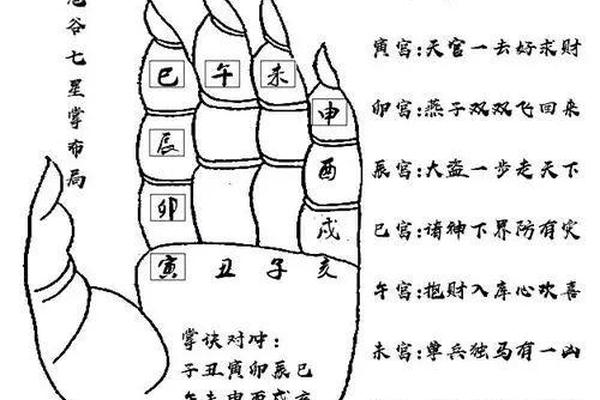 谷七星掌布局
巳 午 未
申
辰
酉
卯
戌
寅 丑 子 亥
掌诀对冲：
子丑寅卯辰巳
午未申酉戌亥
寅宫：天官一去好求财
卯宫：燕子双双飞回来
辰宫：大盗一步走天下
巳宫：诸神下界防有灾
午宫：抱财入库心欢喜
未宫：单兵独马有一凶